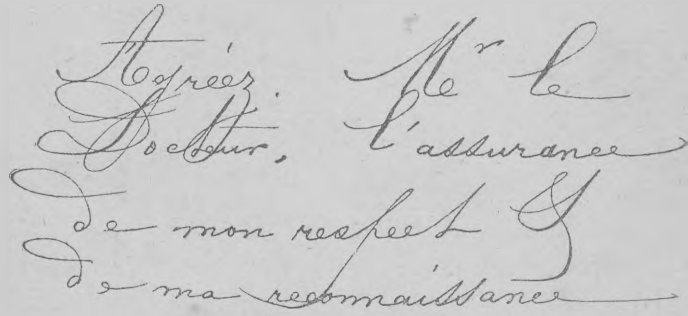 Agréez. Mr le
Docteur, l'assurance
de mon respect &
de ma reconnaissance